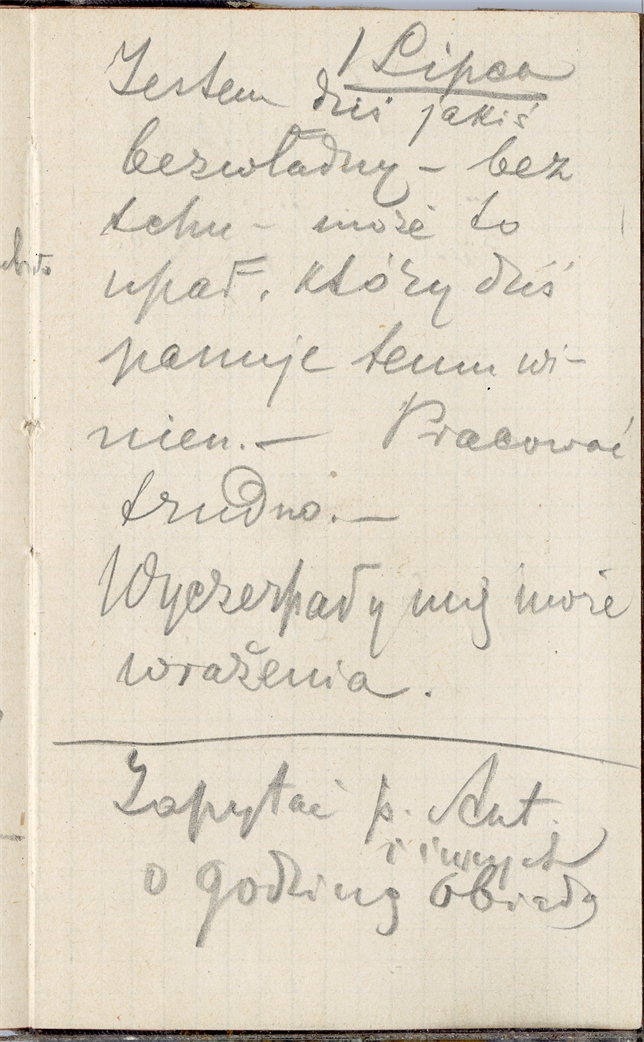 1 Lipca
Jestem dziś jakiś
bezwładny – bez
tchu – może to
upał, który dziś
panuje temu wi-
nien. — Pracować
trudno. —
Wyczerpały mię może
wrażenia.
Zapytać p. Ant.
i innych
o godzinę obiadu